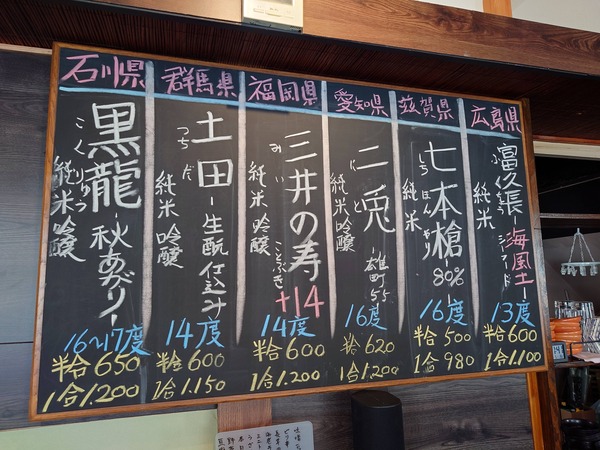 石川県
黒龍
こくりゅう
-秋あがり-
純米吟醸
16〜17度
半合650
1合1.200
群馬県
土田
つちだ
-生酛仕込み
純米吟醸
14度
半合600
1合1.150
福岡県
三井の寿
みいことぶき
+14
純米吟醸
14度
半合600
1合1.200
愛知県
二兎
にと
-雄町55
純米吟醸
16度
半合620
1合1.200
滋賀県
七本槍
しちほんやり
80%
純米
16度
半合500
1合980
広島県
富久長
ふくちょう
海風土
シーフード
純米
13度
半合600
1合1.100